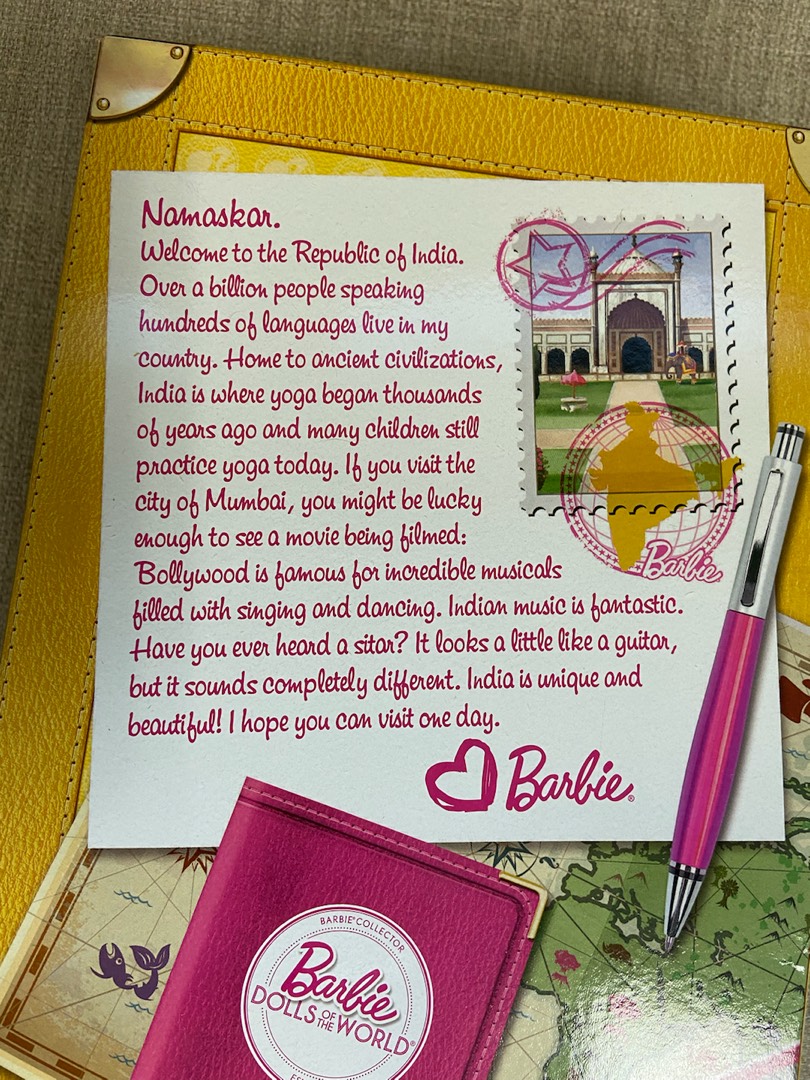 Namaskar.
Welcome to the Republic of India.
Over a billion people speaking
hundreds of languages live in my
country. Home to ancient civilizations,
India is where yoga began thousands
of years ago and many children still
practice yoga today. If you visit the
city of Mumbai, you might be lucky
enough to see a movie being filmed:
Bollywood is famous for incredible musicals
filled with singing and dancing. Indian music is fantastic.
Have you ever heard a sitar? It looks a little like a guitar,
but it sounds completely different. India is unique and
beautiful! I hope you can visit one day.
Barbie®
Barbie
BARBIE® COLLECTOR
Barbie
DOLLS OF THE WORLD®